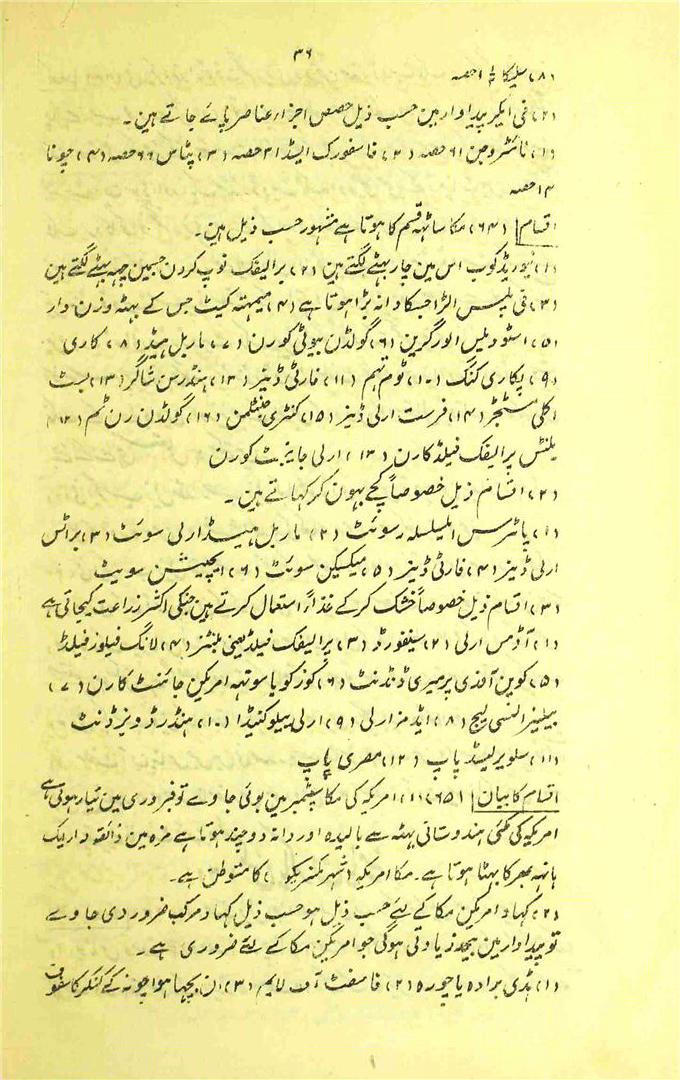 ۳۶
(۸) سلیکا ۱/۲ ۱ حصہ
(۲) فی ایکر پیداوار مین حسب ذیل حصص اجزاء عناصر پائے جاتے ہین۔
(۱) نائٹروجن ۶۱ حصہ (۲) فاسفورک ایسڈ ۳۱ حصہ (۳) پٹاس ۶۶ حصہ (۴) چونا
۱۴ حصہ
اقسام (۶۴) مکا ساٹہہ قسم کا ہوتا ہے مشہور حسب ذیل ہین۔
(۱) کوب اس مین چار بہٹے لگتے ہین (۲) پرالیفک پوپ کردن جسمین چہہ بہٹے لگتے ہین
(۳) الڑا جسکا دانہ بڑا ہوتا ہے (۴) کیٹ جس کے بہٹہ وزن دار
(۵) اسٹوویلس الورگرین (۶) گولڈن بیوٹی کورن (۷) ماربل ہیڈ (۸) کاری
(۹) پکاری کنگ (۱۰) ٹوم تہم (۱۱) فارٹی ڈیز (۱۲) ہنڈرسن شاگر (۱۳) بسٹ
اکلی (۱۴) فرسٹ ارلی ڈیز (۱۵) کنٹری جنٹلمن (۱۶) گولڈن رن ٹم (۱۲)
بلنٹس پرالیفک فیلڈ کارن (۱۳) ارلی جاینٹ کورن
(۲) اقسام ذیل خصوصاً کچے بہون کر کہاتے ہین۔
(۱) پاٹرس سوئٹ (۲) ماربل ہیڈ ارلی سوئٹ (۳) براٹس
ارلی ڈیز (۴) فارٹی ڈیز (۵) میکسیکن سوئٹ (۶) ایجپشین سویٹ
(۳) اقسام ذیل خصوصاً خشک کرکے غذاءً استعمال کرتے ہین جنکی اکثر زراعت کیجاتی ہے
(۱) آڈمس ارلی (۲) سینفورڈ (۳) پرالیفک فیلڈ یعنی بلنٹز (۴) لانگ فیلوز فیلڈ
(۵) کوین آفدی پرمیری ڈنڈنٹ (۶) کوزکو یا سوتہہ امریکن جائنٹ کارن (۷)
بیلیز النسی لیج (۸) ایڈمز ارلی (۹) ارلی ییلو کنیڈا (۱۰) ہنڈرڈ ویز ڈنٹ
(۱۱) سلویر لیسڈ پاپ (۱۲) مصری پاپ
اقسام کا بیان (۶۵) (۱) امریکہ کی مکا سپٹمبر مین بوئی جاوے تو فبروری مین تیار ہوتی ہے
امریکہ کی مکئی ہندوستانی بہٹہ سے بالیدہ اور دانہ دو چند ہوتا ہے مزہ مین ذائقہ دار ایک
ہاتہہ بہر کا بہٹا ہوتا ہے۔ مکا امریکہ (شہر مکزیکو) کا متوطن ہے۔
(۲) کہاد امریکن مکا کے لئے حسب ذیل ہو حسب ذیل کہاد مرکب ضرور دی جاوے
تو پیداوار مین بیحد زیادتی ہوگی جو امریکن مکا کے لئے ضروری ہے۔
(۱) ہڈی برادہ یا چورہ (۲) فاسفٹ آف لایم (۳) ان بجہا ہوا چونہ کے کنکر کا سفوف